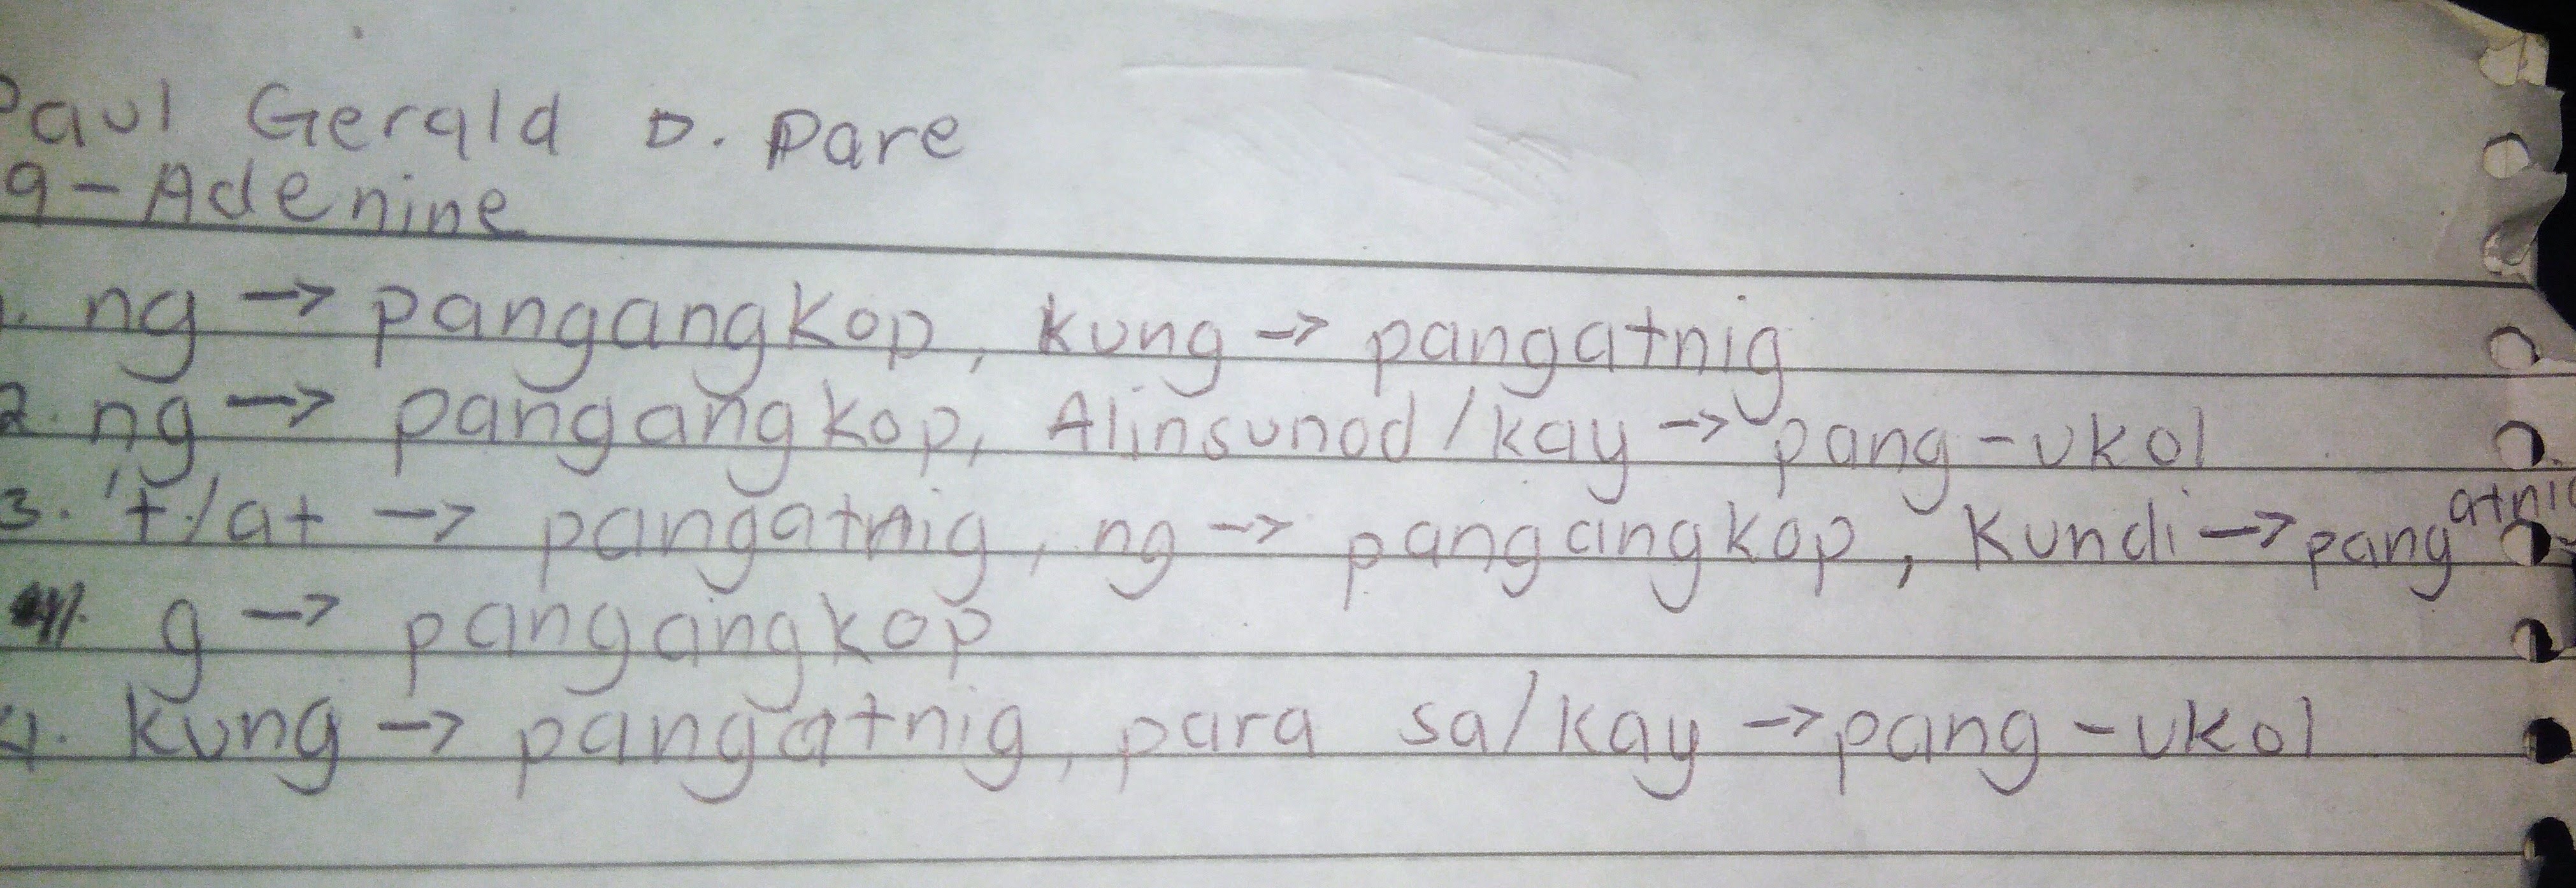 Paul Gerald D. Dare
9-Adenine
1. ng -> pangangkop, kung -> pangatnig
2. ng -> pangangkop, Alinsunod/kay -> pang-ukol
3. 't/at -> pangatnig, ng -> pangangkop, kundi -> pangatnig
g -> pangangkop
4. kung -> pangatnig, para sa/kay -> pang-ukol